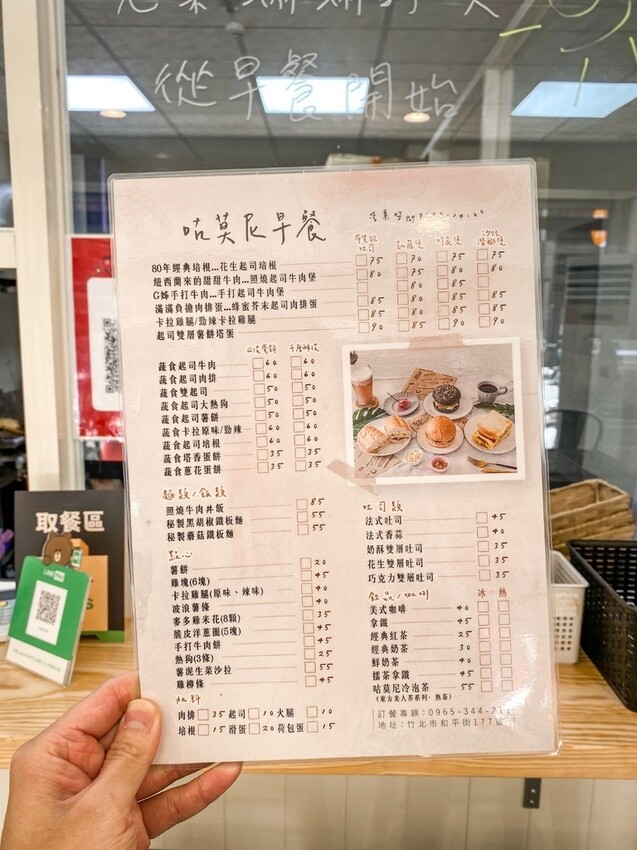 從早餐開始
咕莫尼早餐
80年經典培根...花生起司培根 75 75 75 75
紐西蘭來的甜甜牛肉...照燒起司牛肉堡 80 70 70 70
G姊手打牛肉...手打起司牛肉堡 80 80 80
滿滿負擔肉排蛋...蜂蜜芥末起司肉排蛋 85 85 85 85
卡拉雞腿/勁辣卡拉雞腿 85 85 85 85
起司雙層薯餅塔蛋 90 85 85 90
蔬食起司牛肉 60 60
蔬食起司肉排 60 60
蔬食雙起司 50 50
蔬食起司大熱狗 50 50
蔬食起司薯餅 50 50
蔬食卡拉原味/勁辣 60 60
蔬食起司培根 60 60
蔬食塔香蛋餅 35 35
蔬食蔥花蛋餅 35 35
麵類/飯類
照燒牛肉丼飯 85
秘製黑胡椒鐵板麵 55
秘製蘑菇鐵板麵 55
點心
薯餅 20
雞塊(6塊) 45
卡拉雞腿(原味、辣味) 40
波浪薯條 40
麥多雞米花(8顆) 45
脆皮洋蔥圈(5塊) 45
手打牛肉餅 45
熱狗(3條) 25
薯泥生菜沙拉 55
雞柳條 45
加料
肉排 35 起司 10 火腿 10
培根 15 滑蛋 20 荷包蛋 15
吐司類
法式吐司 45
法式香蒜 40
奶酥雙層吐司 35
花生雙層吐司 35
巧克力雙層吐司 35
飲品/咖啡 冰 熱
美式咖啡 40
拿鐵 45
經典紅茶 25
經典奶茶 30
鮮奶茶 40
擂茶拿鐵 45
咕莫尼冷泡茶 55
(東方美人茶系列、熱茶)
訂餐專線:0965-344-2
地址:竹北市和平街177號
取餐區
LINE Pay